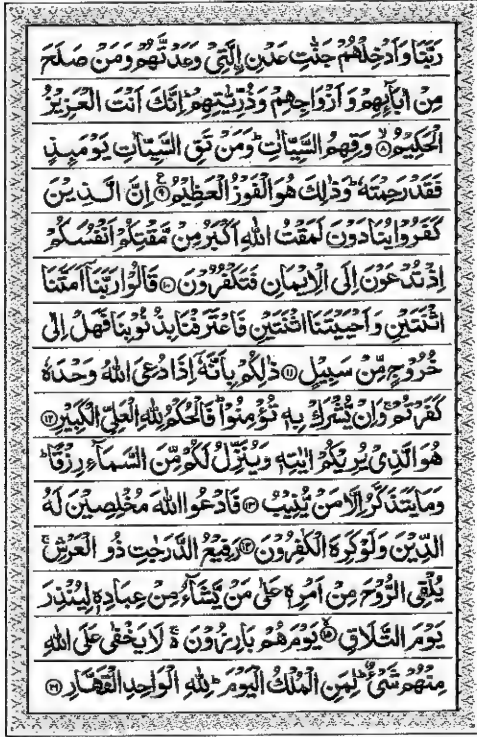 رَبَّنَا وَاَدْخِلْهُمْ جَنّٰتِ عَدْنِ ِۨالَّتِیْ وَعَدْتَّهُمْ وَمَنْ صَلَحَ
مِنْ اٰبَآئِهِمْ وَاَزْوَاجِهِمْ وَذُرِّیّٰتِهِمْ ؕ اِنَّكَ اَنْتَ الْعَزِیْزُ
الْحَكِیْمُ ۙ﴿۸﴾ وَقِهِمُ السَّیِّاٰتِ ؕ وَمَنْ تَقِ السَّیِّاٰتِ یَوْمَىِٕذٍ
فَقَدْ رَحِمْتَهٗ ؕ وَذٰلِكَ هُوَ الْفَوْزُ الْعَظِیْمُ ۠﴿۹﴾ اِنَّ الَّذِیْنَ
كَفَرُوْا یُنَادَوْنَ لَمَقْتُ اللّٰهِ اَكْبَرُ مِنْ مَّقْتِكُمْ اَنْفُسَكُمْ
اِذْ تُدْعَوْنَ اِلَی الْاِیْمَانِ فَتَكْفُرُوْنَ ﴿۱۰﴾ قَالُوْا رَبَّنَاۤ اَمَتَّنَا
اثْنَتَیْنِ وَاَحْیَیْتَنَا اثْنَتَیْنِ فَاعْتَرَفْنَا بِذُنُوْبِنَا فَهَلْ اِلٰی
خُرُوْجٍ مِّنْ سَبِیْلٍ ﴿۱۱﴾ ذٰلِكُمْ بِاَنَّهٗۤ اِذَا دُعِیَ اللّٰهُ وَحْدَهٗ
كَفَرْتُمْ ۚ وَاِنْ یُّشْرَكْ بِهٖ تُؤْمِنُوْا ؕ فَالْحُكْمُ لِلّٰهِ الْعَلِیِّ الْكَبِیْرِ ﴿۱۲﴾
هُوَ الَّذِیْ یُرِیْكُمْ اٰیٰتِهٖ وَیُنَزِّلُ لَكُمْ مِّنَ السَّمَآءِ رِزْقًا ؕ
وَمَا یَتَذَكَّرُ اِلَّا مَنْ یُّنِیْبُ ﴿۱۳﴾ فَادْعُوا اللّٰهَ مُخْلِصِیْنَ لَهُ
الدِّیْنَ وَلَوْ كَرِهَ الْكٰفِرُوْنَ ﴿۱۴﴾ رَفِیْعُ الدَّرَجٰتِ ذُو الْعَرْشِ ۚ
یُلْقِی الرُّوْحَ مِنْ اَمْرِهٖ عَلٰی مَنْ یَّشَآءُ مِنْ عِبَادِهٖ لِیُنْذِرَ
یَوْمَ التَّلَاقِ ۙ﴿۱۵﴾ یَوْمَ هُمْ بَارِزُوْنَ ۚ۬ لَا یَخْفٰی عَلَی اللّٰهِ
مِنْهُمْ شَیْءٌ ؕ لِمَنِ الْمُلْكُ الْیَوْمَ ؕ لِلّٰهِ الْوَاحِدِ الْقَهَّارِ ﴿۱۶﴾